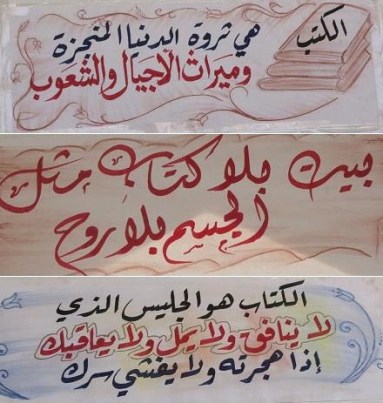 الكتب
هي ثروة الدنيا المنجزة
وميراث الأجيال والشعوب
بيت بلا كتاب مثل
الجسم بلا روح
الكتاب هو الجليس الذي
لا ينافق ولا يمل ولا يعاقبك
إذا هجرته ولا يفشي سرك